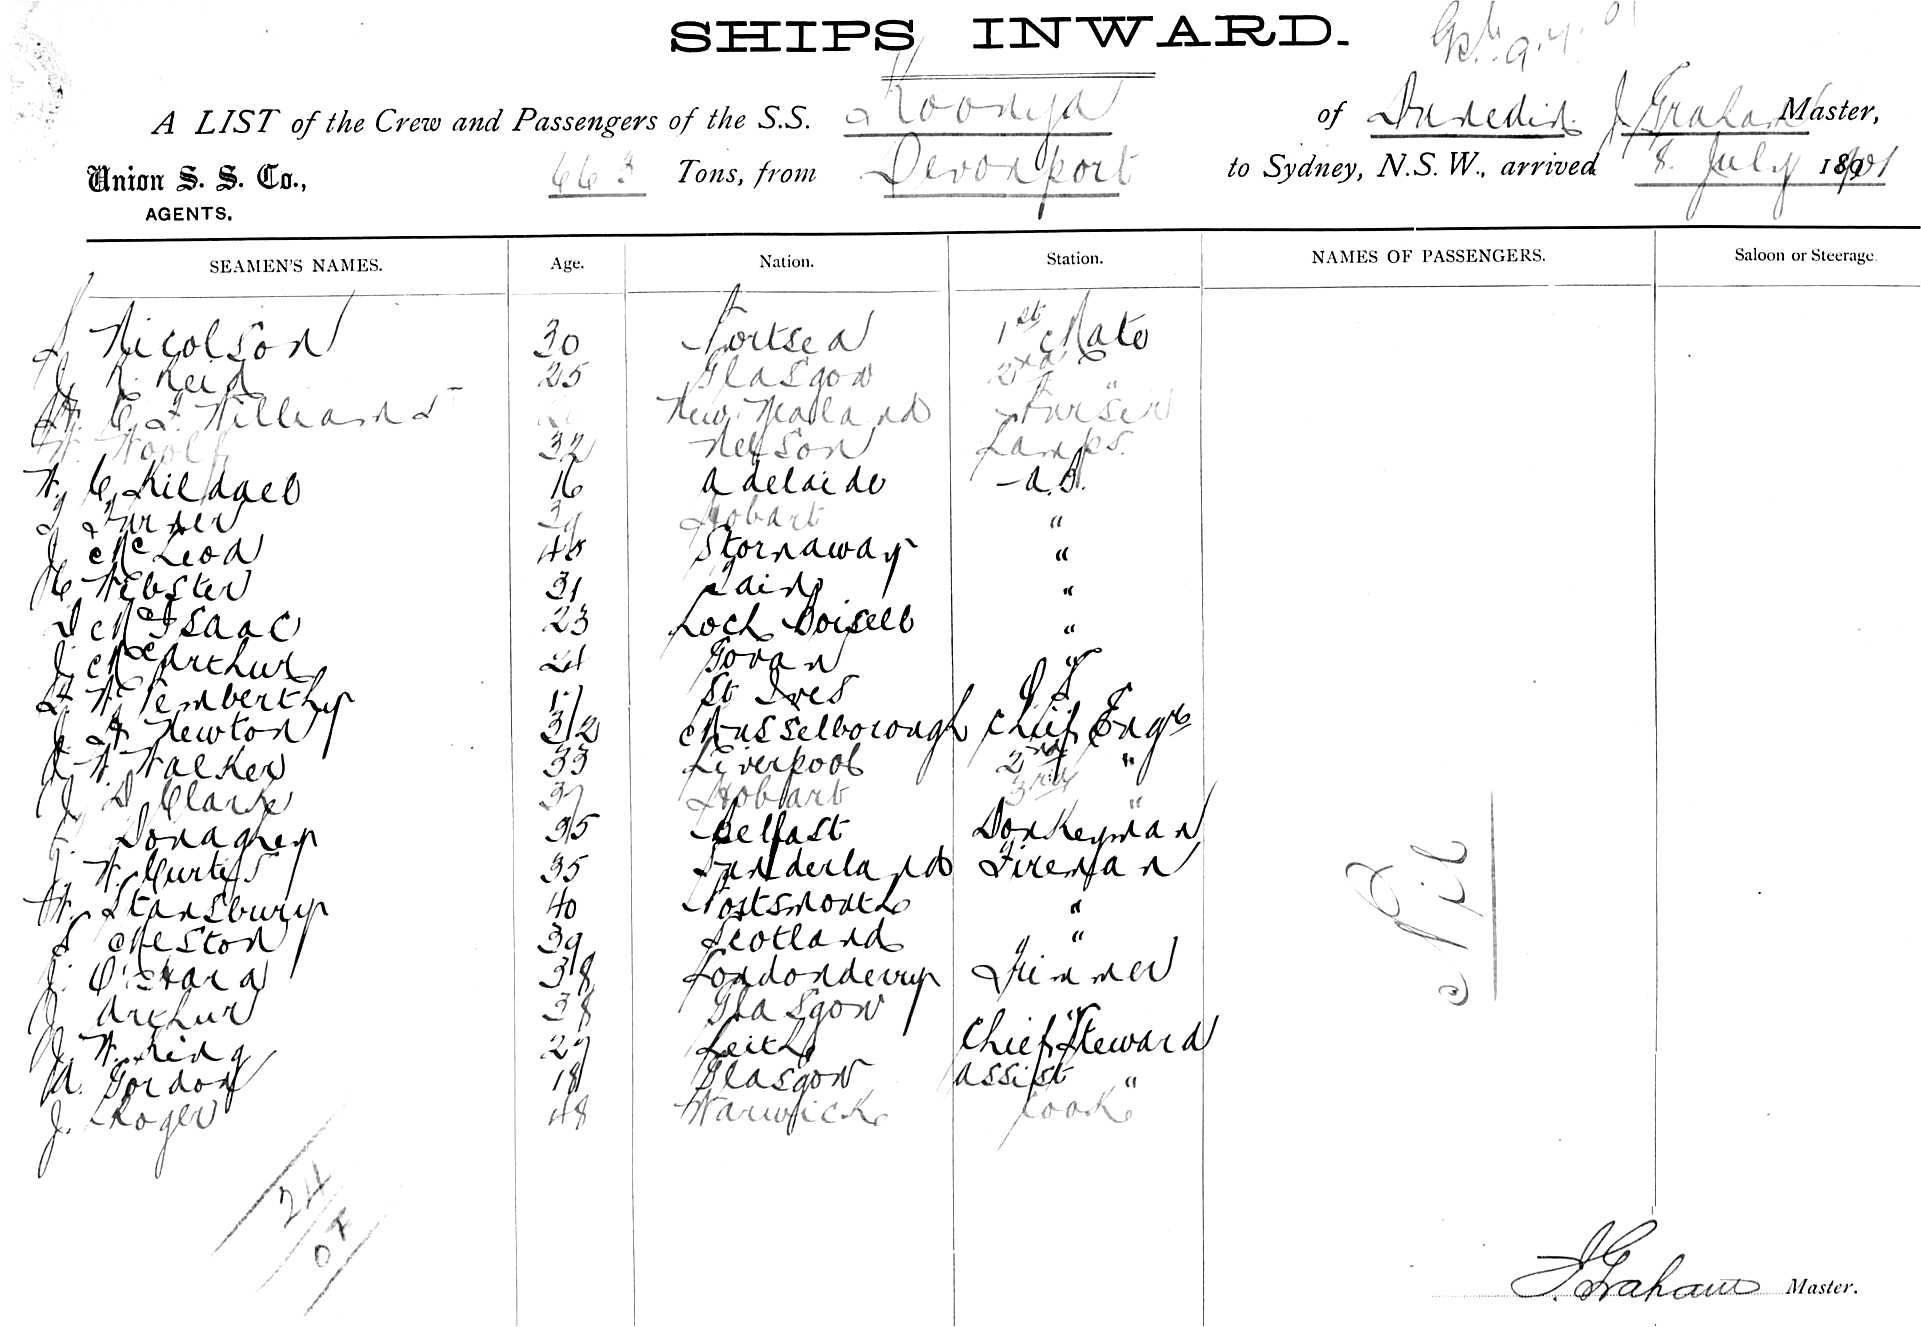 SHIPS INWARD.
A LIST of the Crew and Passengers of the S.S. Koonya of Dunedin J Graham Master,
Union S. S. Co., AGENTS. 663 Tons, from Devonport to Sydney, N.S.W., arrived 8. July 1901
SEAMEN'S NAMES. Age. Nation. Station. NAMES OF PASSENGERS. Saloon or Steerage
Nicolson 30 Portsea 1st Mate
J. R. Reid 25 Glasgow 2nd "
Williams New Zealand Purser
W. Woolf 32 Nelson Lamps.
W. C. Kildael 16 Adelaide A.B.
Turner 39 Hobart "
J McLeod Stornaway "
C Webster 31 "
D McIsaac 23 Loch Boisell "
J McArthur 21 Govan "
W Pemberthy 17 St Ives O S
J. H Newton 32 Musselborough Chief Engr
W Walker 33 Liverpool 2nd "
J D Clark 37 Hobart 3rd "
Donaghey 35 Belfast Donkeyman
J. W. Curtis 35 Sunderland Fireman
W. Stansbury 40 Portsmouth "
S Meston 39 Scotland "
J. O'Hara 38 Londonderry Trimmer
J Arthur 38 Glasgow "
J W. King 27 Leith Chief Steward
A. Gordon 18 Glasgow Assist "
J. Roger 48 Warwick Cook
Nil
24
J. Graham Master.